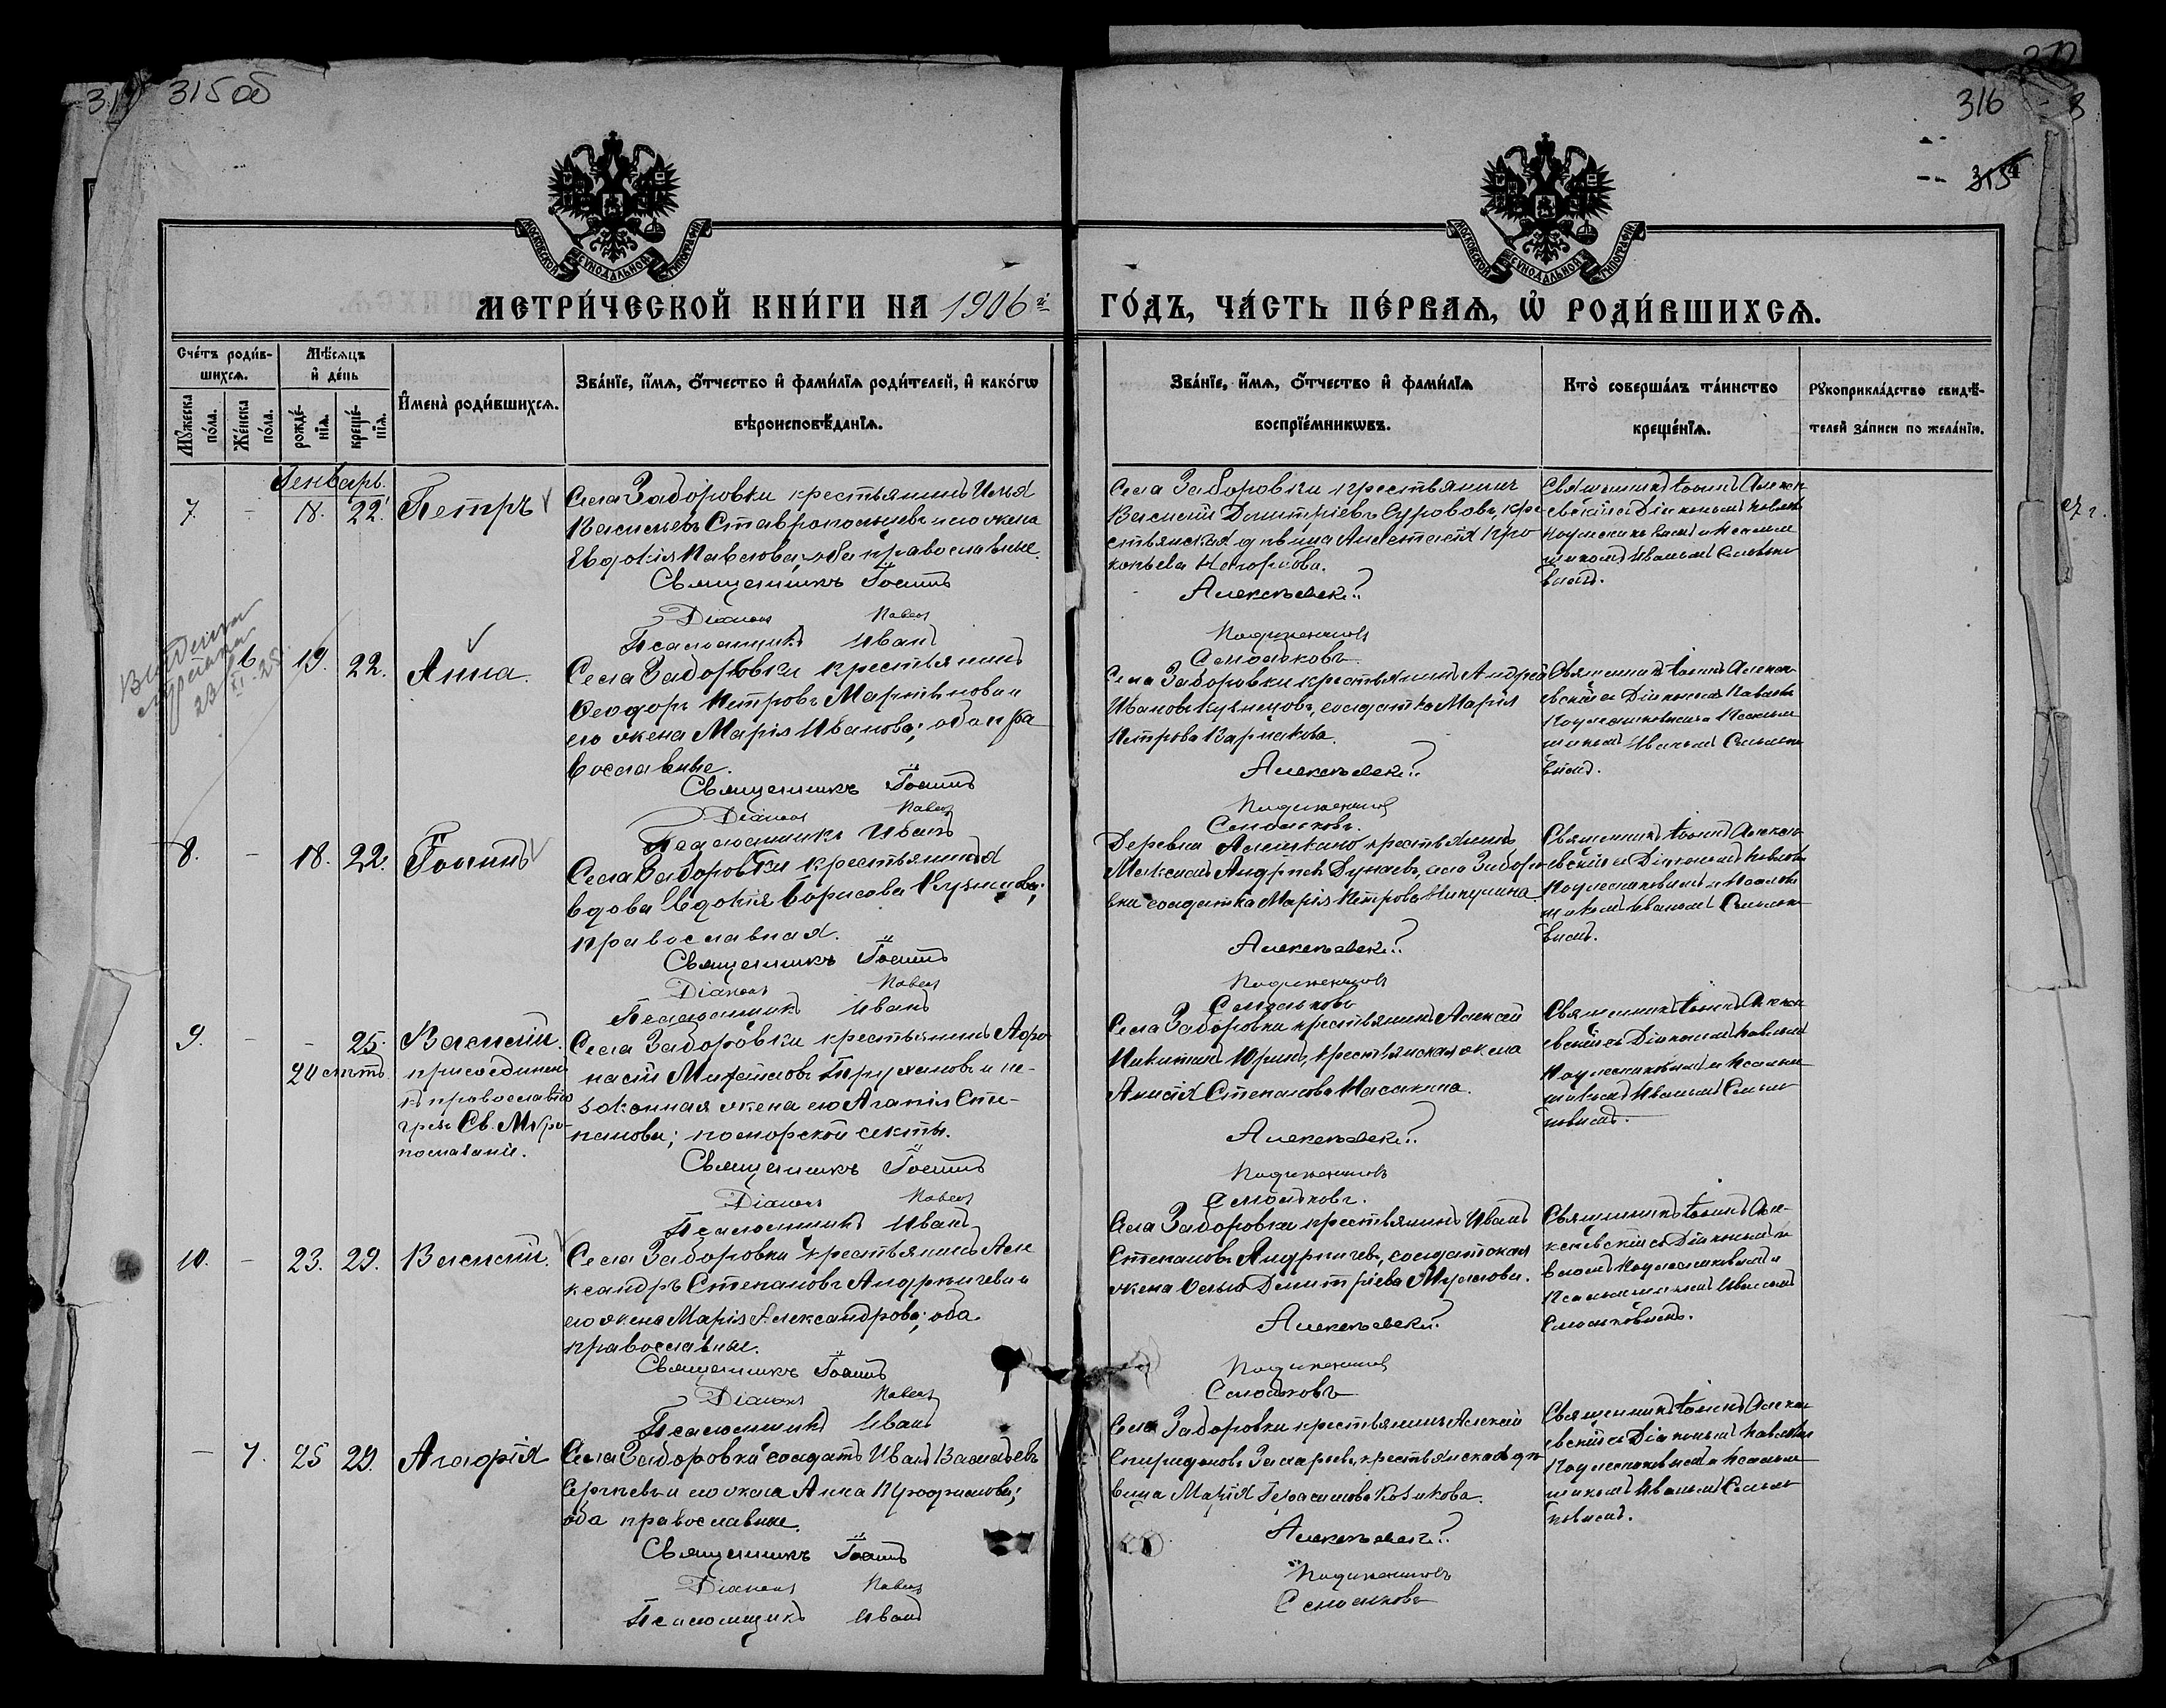 315 об
316
315
МОСКОВСКОЙ СѴНОДАЛЬНОЙ ТИПОГРАФІИ
МОСКОВСКОЙ СѴНОДАЛЬНОЙ ТИПОГРАФІИ
МЕТРИ́ЧЕСКОЙ КНИ́ГИ НА 1906й
ГО́ДЪ, ЧА́СТЬ ПЕ́РВАѦ, Ѡ҆ РОДИ́ВШИХСѦ.
Сче́тъ роди́в-
шихсѧ.
Мѣ́сѧцъ
и҆ де́нь
Мꙋ́жеска по́ла.
Же́нска по́ла.
рожде́-
нїѧ.
креще́-
нїѧ.
И҆мена̀ роди́вшихсѧ.
Зва́нїе, и҆́мѧ, ѻ҆́тчество и҆ фами́лїѧ роди́телей, и҆ како́гѡ
вѣроисповѣ́данїѧ.
Зва́нїе, и҆́мѧ, ѻ҆́тчество и҆ фами́лїѧ
воспрїе́мникѡвъ.
Кто̀ соверша́лъ та́инство
креще́нїѧ.
Рꙋкоприкла́дство свидѣ́-
телей за́писи по жела́нїю.
Генварь.
7. - 18. 22. Петръ
Села Заборовки крестьянинъ Илья
Васильевъ Ставропольцевъ и его жена
Евдокія Павлова; оба православные.
Священникъ Іоаннъ
Діаконъ Павелъ
Псаломщикъ Иванъ
Села Заборовки крестьянинъ
Василій Димитріевъ Сурововъ, кре-
стьянская дѣвица Анастасія Про-
копьева
Алексѣевскій
Подлесниковъ
Смольковъ.
Священникъ Іоаннъ Алексѣ-
евскій съ Діакономъ Павломъ
Подлесниковымъ и Псалом-
щикомъ Иваномъ Смолько-
вымъ.
6. 19. 22. Анна.
Села Заборовки крестьянинъ
Ѳеодоръ Петровъ Мартыновъ и
его жена Марія Иванова; оба пра-
вославные.
Священникъ Іоаннъ
Діаконъ Павелъ
Псаломщикъ Иванъ
Села Заборовки крестьянинъ Андрей
Ивановъ Кузнецовъ, солдатка Марія
Петрова
Алексѣевскій
Подлесниковъ
Смольковъ.
Священникъ Іоаннъ Алексѣ-
евскій съ Діакономъ Павломъ
Подлесниковымъ и Псалом-
щикомъ Иваномъ Смолько-
вымъ.
8. - 18. 22. Іоаннъ
Села Заборовки крестьянская
вдова Евдокія Борисова Кузнецова;
православная.
Священникъ Іоаннъ
Діаконъ Павелъ
Псаломщикъ Иванъ
Деревни крестьянинъ
Максимъ Андреевъ Дунаевъ, села Заборо-
вки солдатка Марія Петрова Никулина.
Алексѣевскій
Подлесниковъ
Смольковъ
Священникъ Іоаннъ Алексѣ-
евскій съ Діакономъ Павломъ
Подлесниковымъ и Псалом-
щикомъ Иваномъ Смолько-
вымъ.
9. - - 25. Василій.
20 лѣтъ присоединенъ
къ православію
чрезъ Св. Мѵро-
помазаніе.
Села Заборовки крестьянинъ Аѳо-
насій Михайловъ и не-
законная жена его Агапія Сте-
панова; поморской секты.
Священникъ Іоаннъ
Діаконъ Павелъ
Псаломщикъ Иванъ
Села Заборовки крестьянинъ Алексѣй
Никитинъ Юринъ, крестьянская жена
Анисія Степанова Насакина.
Алексѣевскій
Подлесниковъ
Смольковъ.
Священникъ Іоаннъ Алексѣ-
евскій съ Діакономъ Павломъ
Подлесниковымъ и Псалом-
щикомъ Иваномъ Смоль-
ковымъ.
10. - 23. 29. Василій.
Села Заборовки крестьянинъ Але-
ксандръ Степановъ Андреичевъ и
его жена Марія Александрова; оба
православные.
Священникъ Іоаннъ
Діаконъ Павелъ
Псаломщикъ Иванъ
Села Заборовки крестьянинъ Иванъ
Степановъ Андреичевъ, солдатская
жена Димитріева
Алексѣевскій
Подлесниковъ
Смольковъ
Священникъ Іоаннъ Але-
ксѣевскій съ Діакономъ Па-
вломъ Подлесниковымъ и
Псаломщикомъ Иваномъ
Смольковымъ.
- 7. 25 29. Агафія
Села Заборовки солдатъ Иванъ Васильевъ
Сергѣевъ и его жена Анна;
оба православные.
Священникъ Іоаннъ
Діаконъ Павелъ
Псаломщикъ Иванъ
Села Заборовки крестьянинъ Алексѣй
Спиридоновъ Захаровъ, крестьянская дѣ-
вица Марія Герасимова Козикова.
Алексѣевскій
Подлесниковъ
Смольковъ
Священникъ Іоаннъ Алексѣ-
евскій съ Діакономъ Павломъ
Подлесниковымъ и Псалом-
щикомъ Иваномъ Смоль-
ковымъ.